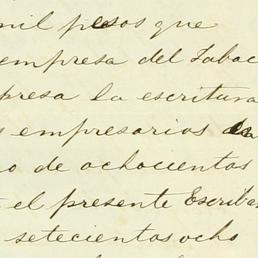 mil pesos que
empresa del Tabac
presa la escritura
s empresarios
o de ochocientos
el presente Escriba
setecientos ocho